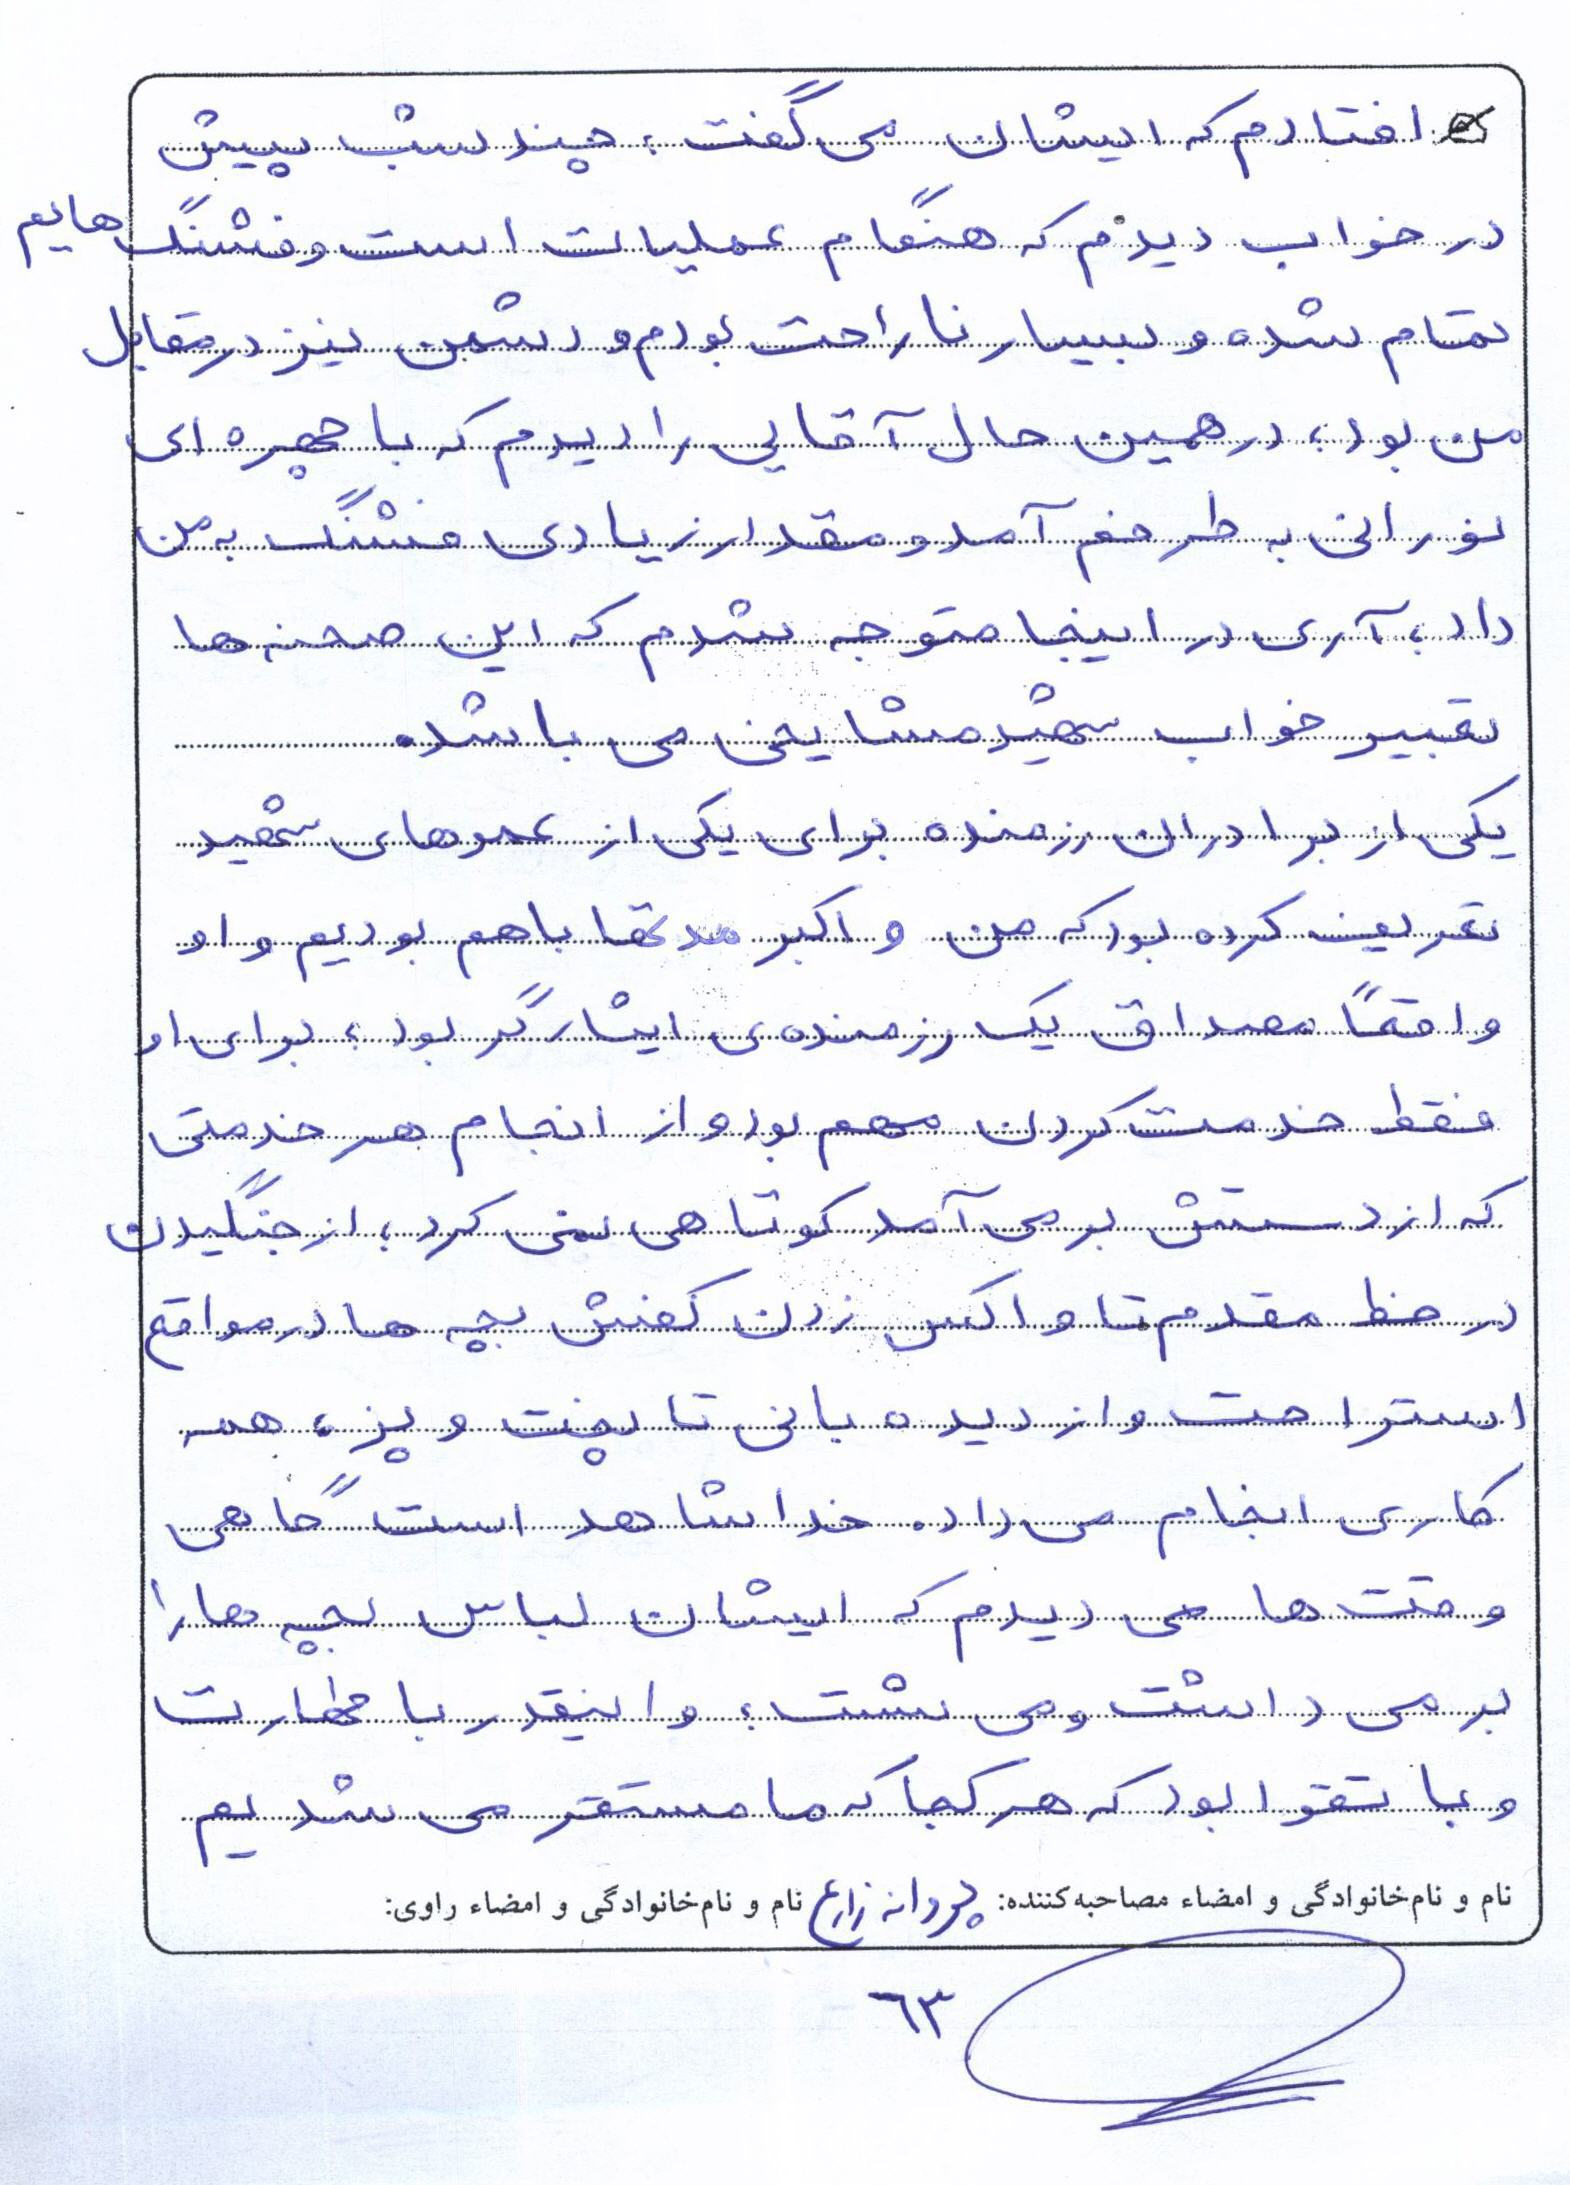 افتادم که ایشان می گفت ؛ چند شب پیش
در خواب دیدم که هنگام عملیات است و فشنگ هایم
تمام شده و بسیار ناراحت بودم و دشمن نیز در مقابل
من بود ؛ در همین حال آقایی را دیدم که با چهره ای
نورانی به طرفم آمد و مقدار زیادی فشنگ به من
داد ؛ آری در اینجا متوجه شدم که این صحنه ها
تعبیر خواب شهید مشایخی می باشد.
یکی از برادران رزمنده برای یکی از عموهای شهید
تعریف کرده بود که من و اکبر مدتها با هم بودیم و او
واقعاً مصداق یک رزمنده ی ایثارگر بود ؛ برای او
فقط خدمت کردن مهم بود و از انجام هر خدمتی
که از دستش بر می آمد کوتاهی نمی کرد ؛ از جنگیدن
در خط مقدم تا واکس زدن کفش بچه ها در مواقع
استراحت و از دیده بانی تا پخت و پز ، همه
کاری انجام می داد. خدا شاهد است گاهی
وقت ها می دیدم که ایشان لباس بچه ها را
بر می داشت و می شست ؛ و اینقدر با طهارت
و با تقوا بود که هر کجا که ما مستقر می شدیم
نام و نام‌خانوادگی و امضاء مصاحبه‌کننده: پروانه زارع نام و نام‌خانوادگی و امضاء راوی:
٦٣